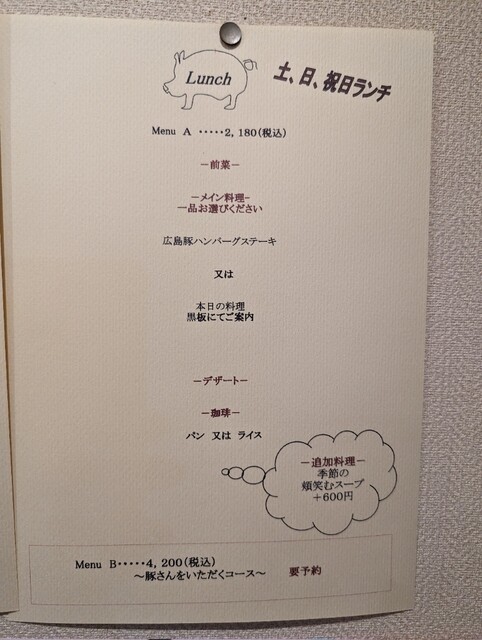 Lunch
土、日、祝日ランチ
Menu A ・・・・・2,180(税込)
－前菜－
－メイン料理－
一品お選びください
広島豚ハンバーグステーキ
又は
本日の料理
黒板にてご案内
－デザート－
－珈琲－
パン 又は ライス
－追加料理－
季節の
頬笑むスープ
＋600円
Menu B・・・・・4,200(税込)
～豚さんをいただくコース～ 要予約